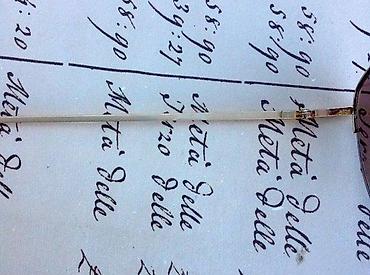 Delle
58:90 Metà Delle
58:90 Metà Delle
58:90 Metà Delle
39:27 Terzo Delle
58:90 Metà Delle
:20 Metà Delle